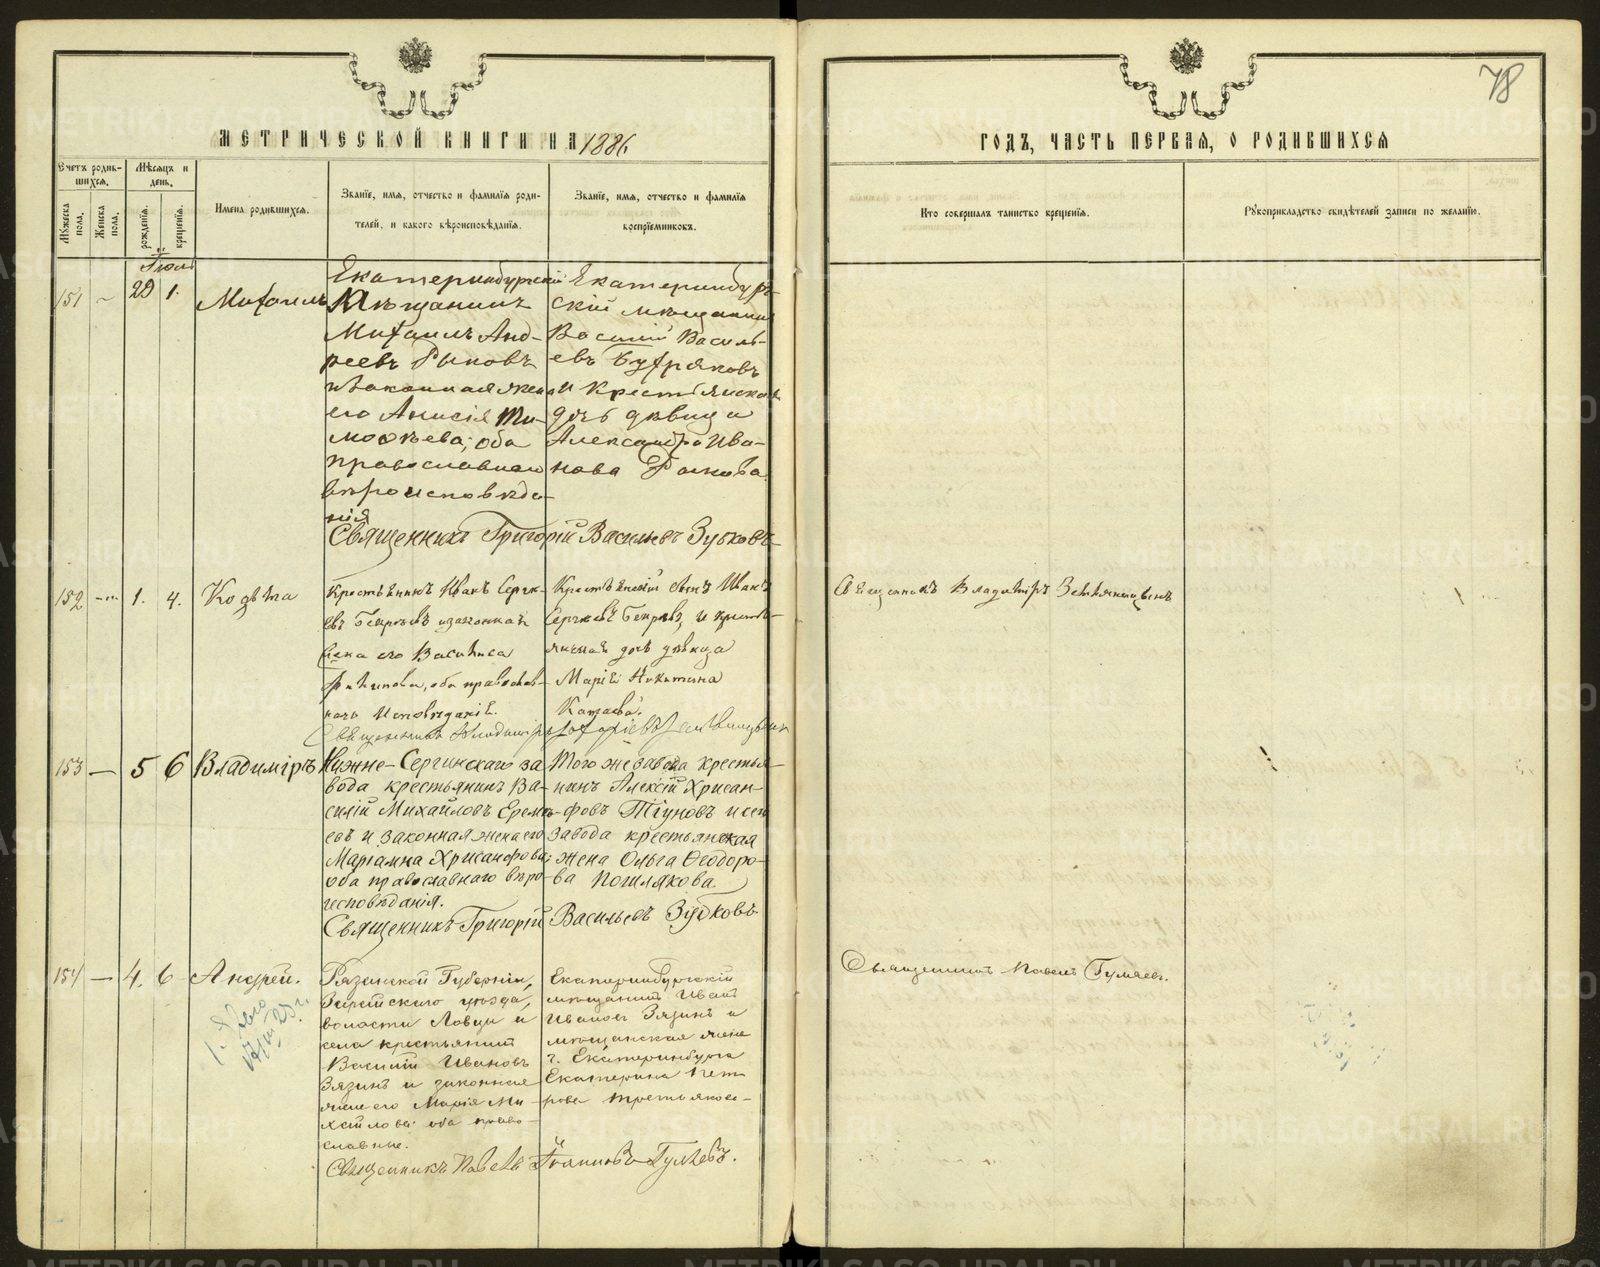 78
МЕТРИЧЕСКОЙ КНИГИ НА 1886
ГОДЪ, ЧАСТЬ ПЕРВАЯ, О РОДИВШИХСЯ
Счетъ родив-
шихся.
Мѣсяцъ и
день.
Мужеска
пола.
Женска
пола.
рожденія.
крещенія.
Имена родившихся.
Званіе, имя, отчество и фамилія роди-
телей, и какого вѣроисповѣданія.
Званіе, имя, отчество и фамилія
воспріемниковъ.
Кто совершалъ таинство крещенія.
Рукоприкладство свидѣтелей записи по желанію.
151
29 1.
Михаилъ
Екатеринбургскій
Мѣщанинъ
Михаилъ Анд-
реевъ Рыковъ
и законная жена
его Анисія Ти-
моѳѣева; оба
православнаго
вѣроисповѣда-
нія
Екатеринбург-
скій мѣщанинъ
Василій Василь-
евъ
и Крестьянская
дочь дѣвица
Александра Ива-
нова
Священникъ Григорій Васильевъ Зубковъ
152 — 1. 4.
Козьма
Крестьянинъ Иванъ Серге-
евъ и законная
жена его Василиса
оба православ-
наго исповѣданія.
Крестьянскій сынъ Иванъ
Сергѣевъ и кресть-
янская дочь дѣвица
Марія Никитина
Священникъ Владиміръ
Священникъ Владиміръ
153 — 5 6
Владиміръ
Нижне-Сергинскаго за
вода крестьянинъ Ва-
силій Михайловъ Еремѣ-
евъ и законная жена его
Маріамна Хрисанфова;
оба православнаго вѣро-
исповѣданія.
Того же завода крестья-
нинъ Алексій Хрисан-
фовъ Тіуновъ и сего
завода крестьянская
жена Ольга Ѳеодоро-
ва Пошлякова
Священникъ Григорій Васильевъ Зубковъ
154 — 4. 6
Андрей.
Рязанской Губерніи,
Зарайскаго уѣзда,
волости Ловцы и
села крестьянинъ
Василій Ивановъ
Зязинъ и законная
жена его Марія Ми-
хайлова оба право-
славные.
Екатеринбургскій
мѣщанинъ Иванъ
Ивановъ Зязинъ и
мѣщанская жена
г. Екатеринбурга
Екатерина Пет
рова Третьякова-
Священникъ Павелъ Іоанновъ Гуляевъ.
Священникъ Павелъ Гуляевъ.